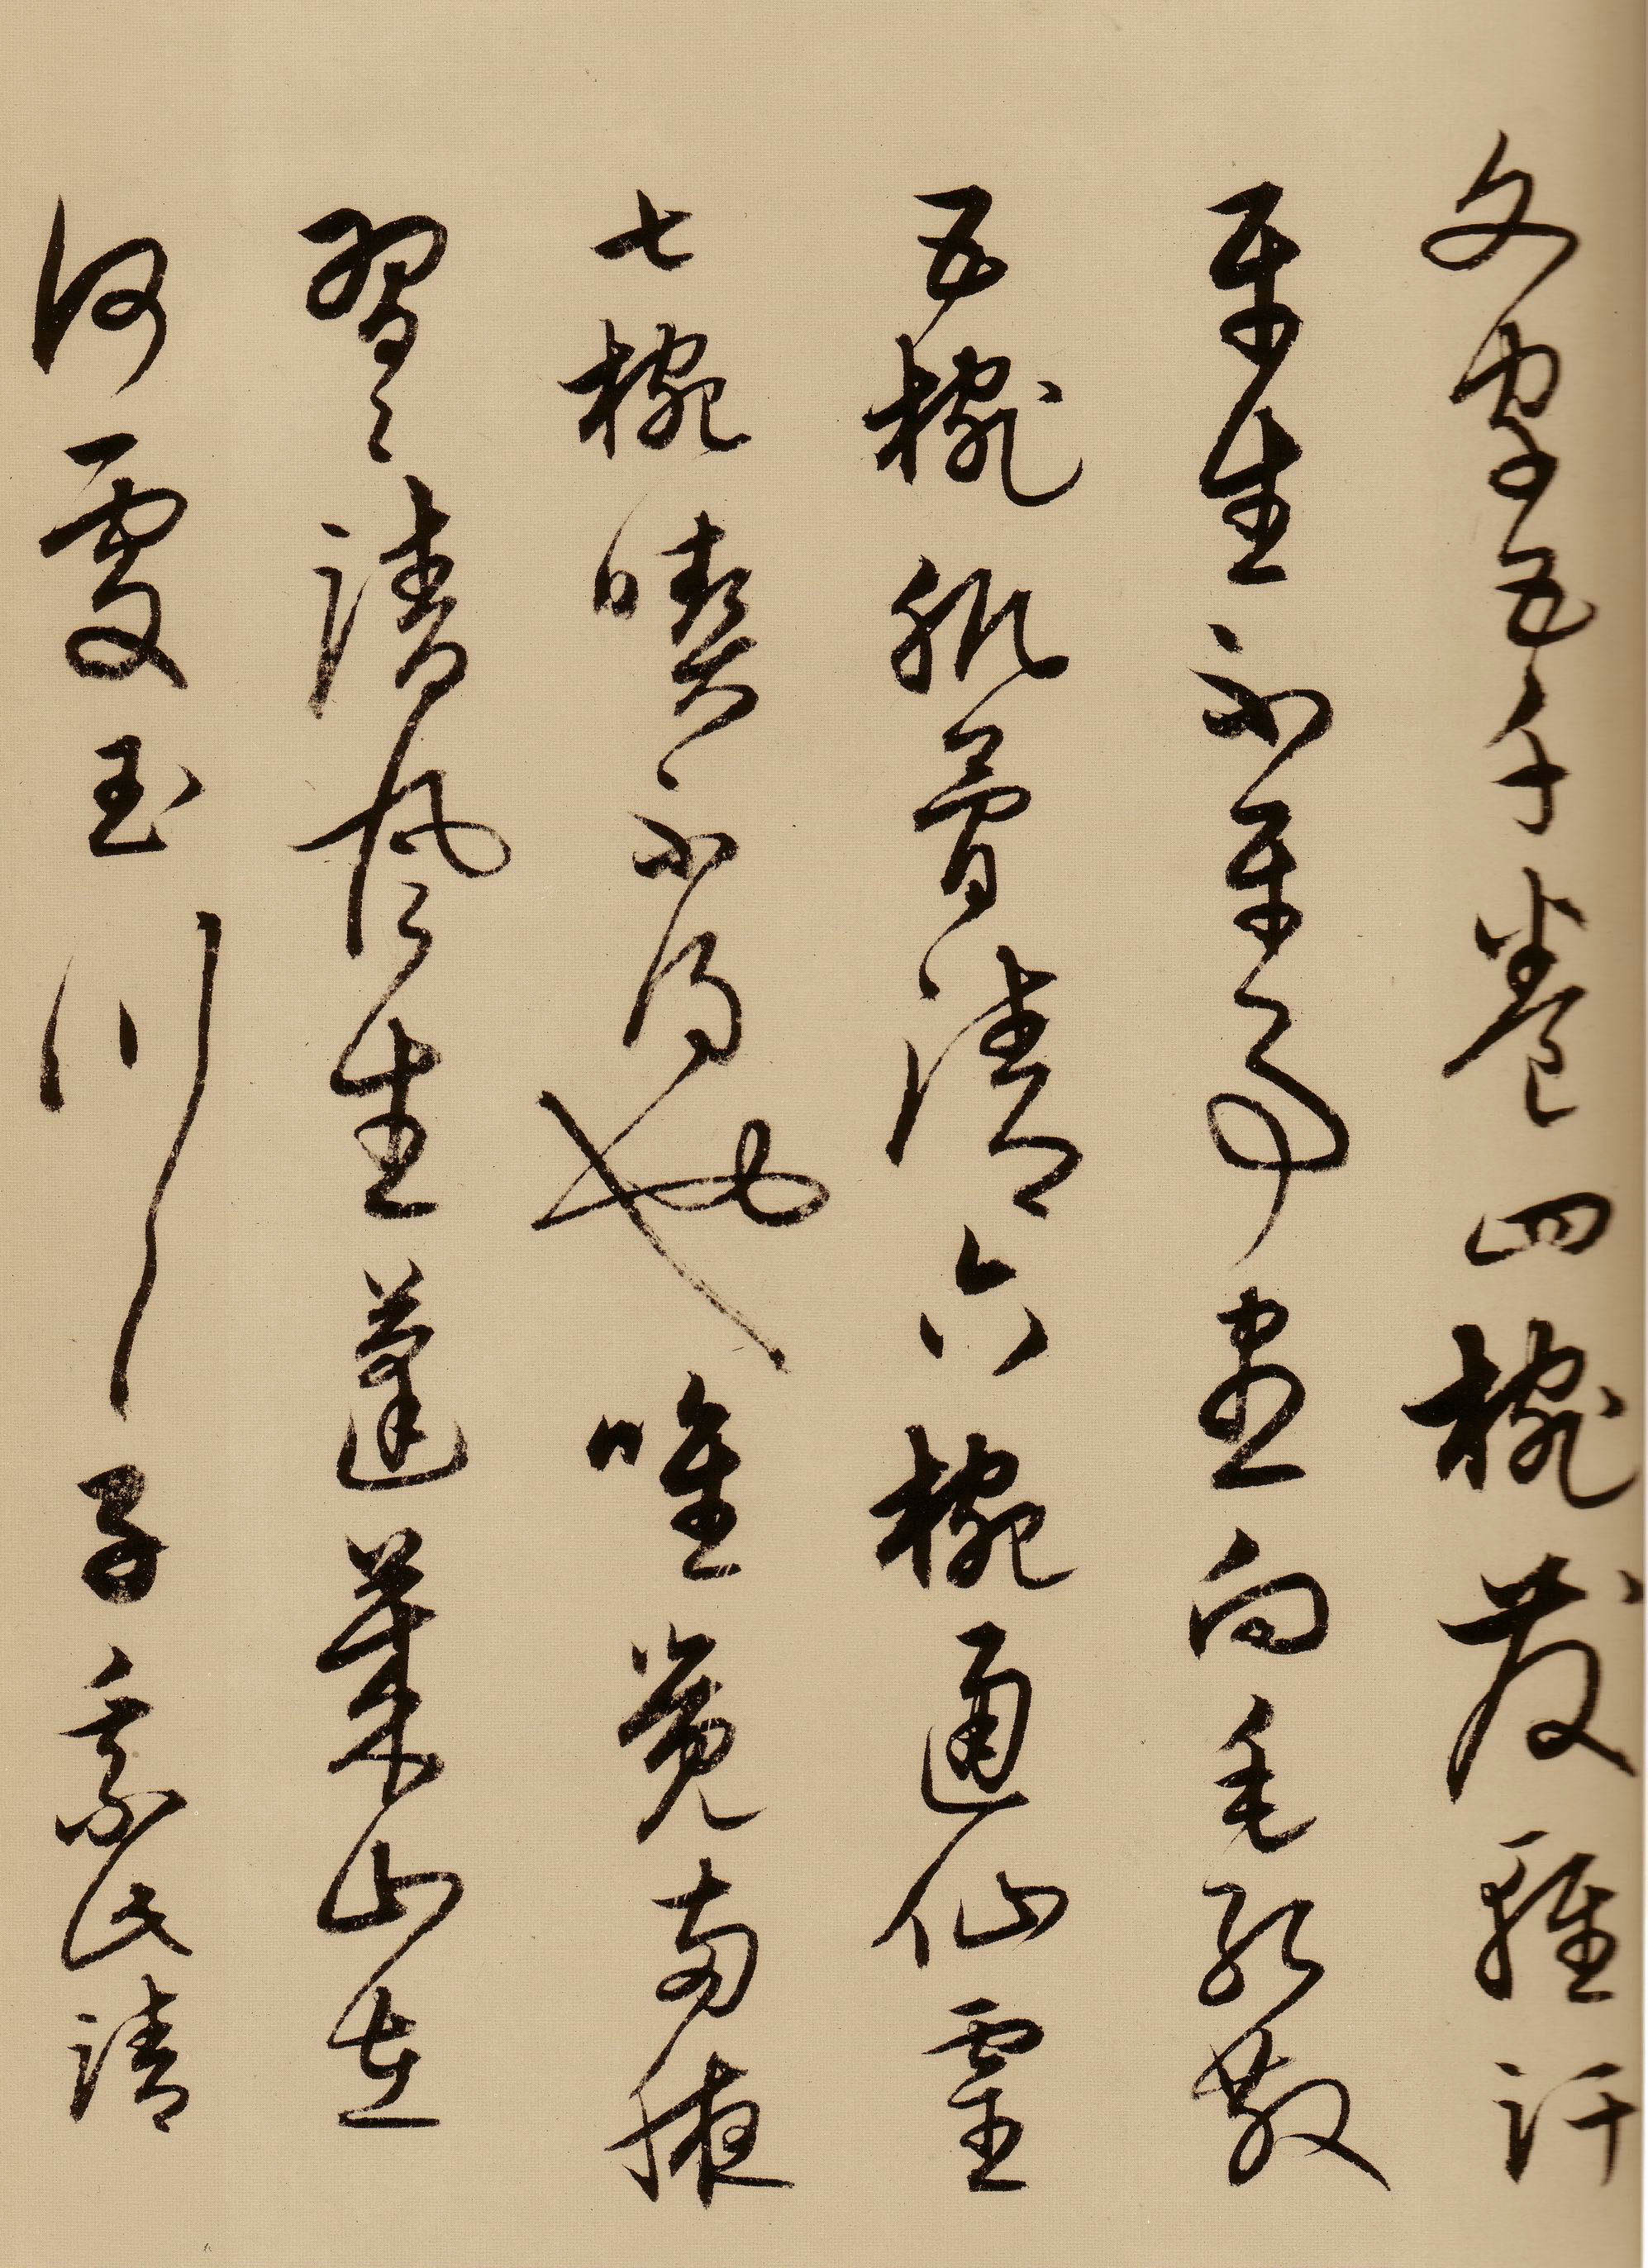 文字五千卷四椀發輕汗
平生不平事盡向毛孔散
五椀肌骨清六椀通仙靈
七椀喫不得也唯覺兩腋
習〻清風生蓬萊山在
何處玉川子乘此清